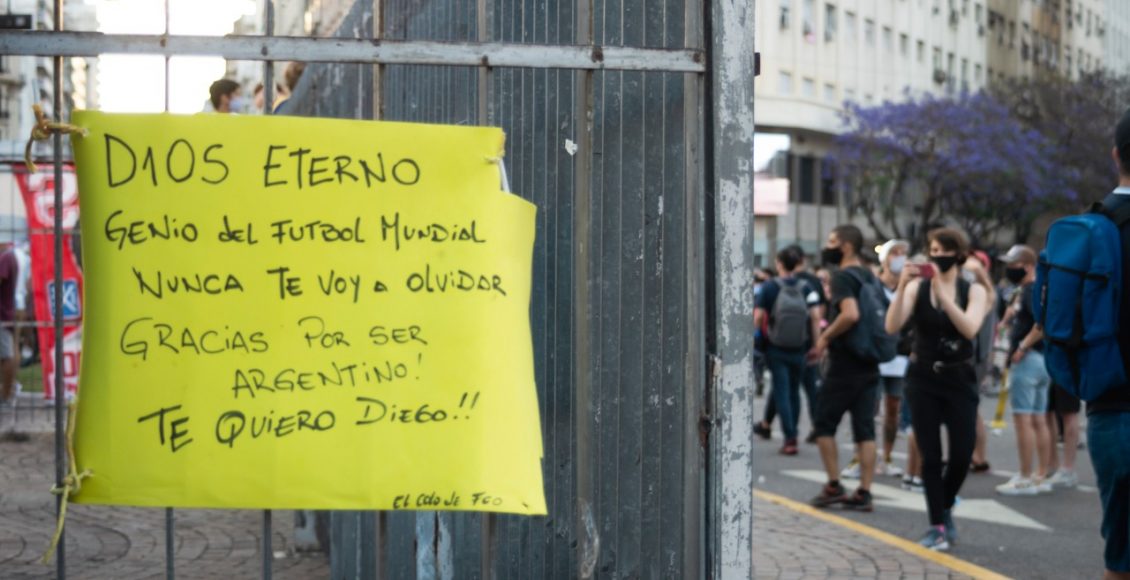 D1OS ETERNO
GENIO del FUTBOL MUNDIAL
NUNCA TE VOY A OLVIDAR
GRACIAS POR SER
ARGENTINO!
TE QUIERO DIEGO!!
EL COLO DE